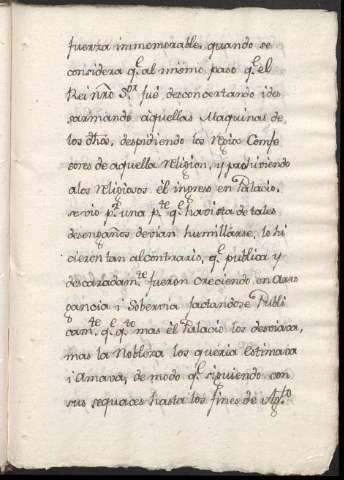 fuerza immemorable, quando se
considera q.e al mismo paso q.e el
Rei ñro S.or fué desconcertando i des
sarmando aquellas Maquinas de
los dhos, despidiendo los Confe
sores de aquella Religion, y prohiviendo
a los Religiosos él ingreso en Palacio,
se vio p.r una p.te q.e ha vista de tales
desengaños devian humillarse, lo hi
cieron tan alcontrario, q.e publica y
descaradam.te fueron creciendo en Arro
gancia i Sobervia jactandose Publi
cam.te q.e q.to mas él Palacio los desviava,
mas la Nobleza los queria Estimava
i Amava; de modo q.e siguiendo con
sus sequaces hasta los fines de Ag.to